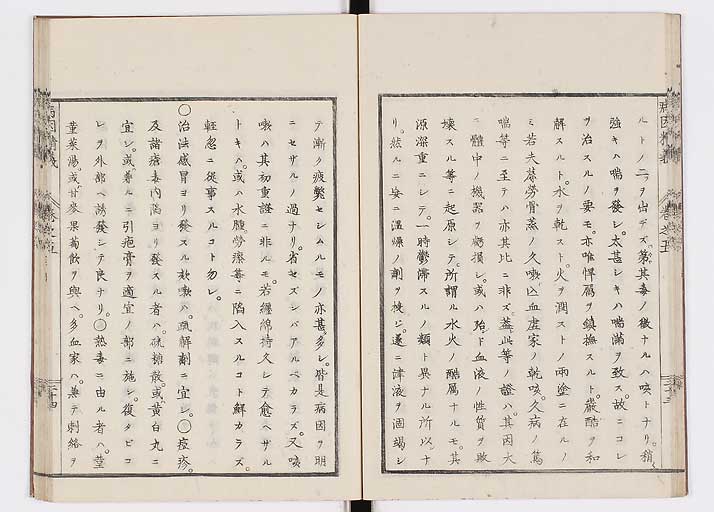 ルトノ二ヲ出デズ。蓋其毒ノ微ナルハ咳トナリ。稍〻
強キハ喘ヲ發シ。太甚シキハ喘滿ヲ致ス。故ニコレ
ヲ治スルノ要モ。亦唯悍厲ヲ鎮撫スルト。嚴酷ヲ和
解スルト。水ヲ乾スト。火ヲ潤ストノ兩塗ニ在ルノ
ミ若夫蓐勞骨蒸ノ久嗽亡血虚家ノ乾咳。久病ノ篤
喘等ニ至テハ亦其比ニ非ズ。蓋此等ノ證ハ。其因大
ニ體中ノ機器ヲ虧損シ。或ハ殆ド血液ノ性質ヲ敗
壞スル等ニ起原シテ。所謂ル水火ノ酷厲ナルモ。其
源深重ニシテ。一時鬱滯スルノ類ト異ナル所以ナ
リ。然ルニ妄ニ温燥ノ劑ヲ投ジ。遂ニ津液ヲ涸竭シ
病因精義 卷之五
テ漸ク疲斃セシムルモノ亦甚多シ。皆是病因ヲ明
ニセザルノ過ナリ。省セズンバアルベカラズ。又咳
嗽ハ其初重證ニ非ルモ。若纏綿持久シテ愈ヘザル
トキハ。或ハ水腫勞瘵等ニ陷入スルコト鮮カラズ。
輕忽ニ從事スルコト勿レ。
〇治法感冒ヨリ發スル欬嗽ハ。疏解劑ニ宜シ。〇痘疹。
及諸瘡毒内陷ヨリ發スル者ハ。排散或黄白丸ニ
宜シ。或ハ兼ルニ引疱膏ヲ適宜ノ部ニ施シ。復タビコ
レヲ外部ヘ誘發シテ良ナリ。〇熱毒ニ由ル者ハ。
菫菜湯或甘麥果萄飲ヲ與ヘ。多血家ハ。兼テ刺絡ヲ
卷之五 三十四